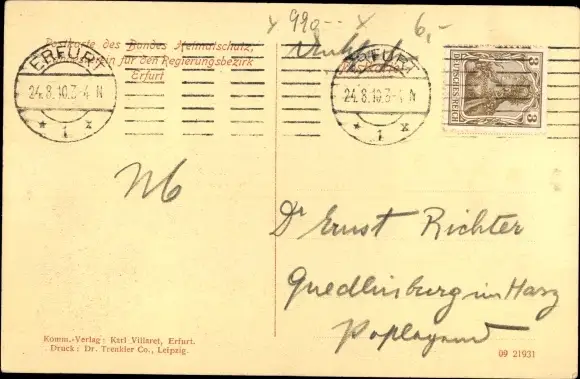 x 990.-- x
6,-
Postkarte des Bundes Heimatschutz,
für den Regierungsbezirk
Erfurt
ERFURT
24.8.10.3-4 N
* 1 x
ERFURT
24.8.10.3-4 N
* 1 x
3 DEUTSCHES REICH 3
Dr Ernst Richter
Quedlinburg im Harz
Komm.-Verlag: Karl Villaret, Erfurt.
Druck: Dr. Trenkler Co., Leipzig.
09 21931